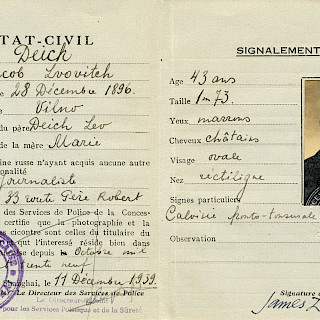 TAT-CIVIL
Deich
cob Lvovitch
le 28 Décembre 1896.
Vilno
du père Deich Leo
de la mère Marie
ine russe n'ayant acquis aucune autre
ionalité
Journaliste
33 route Père Robert
des Services de Police de la Conces-
certifie que la photographie et la
ci-contre sont celles du titulaire du
et que l'intéressé réside bien dans
depuis Octobre mil
neuf
hanghai, le 11 Décembre 1939.
Le Directeur des Services de Police
pour les Services Politiques et de la Sûreté
SIGNALEMENT
Age 43 ans
Taille 1m73
Yeux marrons
Cheveux châtains
Visage ovale
Nez rectiligne
Signes particuliers
Calvitie fronto-tonsurale
Observation
Signature
James